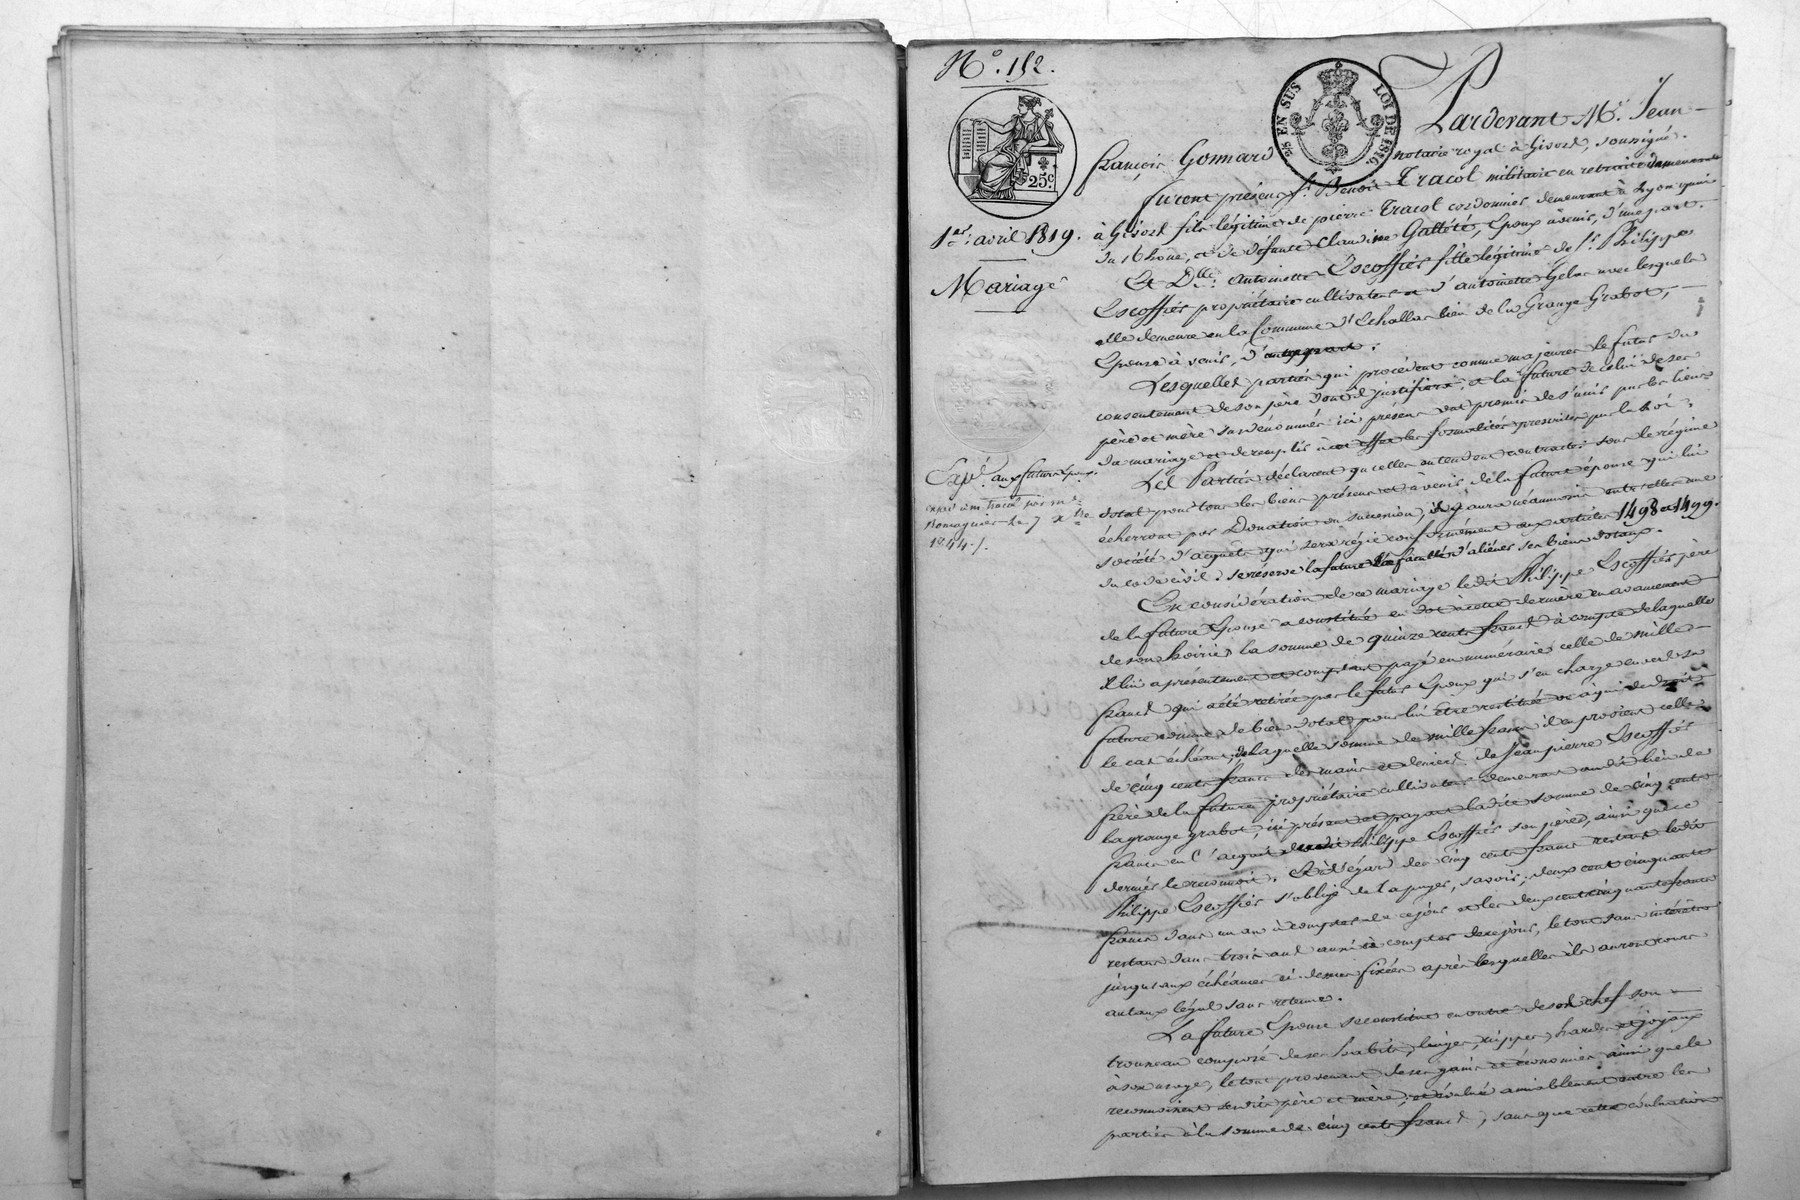 N.° 152.
25 EN SUS
LOI DE 1816.
25.c
1.er avril 1819.
Mariage
Expé. aux futurs Epoux.
1844./.
Pardevant M.e Jean
françois Gonnard notaire royal à Givors, soussigné.
furent présens s.r Benoit Tracol militaire en retraite demeurant
à Givors fils légitime de pierre Tracol cordonnier demeurant à Lyon quai
du Rhone, et de défunte Claudine Galtété, Epoux à venir, d'une part.
Et D.lle Antoinette Escoffier fille légitime de s.r Philippe
Escoffier propriétaire cultivateur et d'antoinette Gelas avec lesquels
elle demeure en la Commune d'Echallas lieu de la Grange Grabot,
Epouse à venir, d'autre part.
Lesquelles parties qui procèdent comme majeures le futur du
consentement de son père dont il justifiera, et la future de celui de ses
père et mère susdénommés ici présens ont promis de s'unir par les liens
du mariage et de remplir à cet effet les formalités prescrites par la loi.
Les Parties déclarent qu'elles entendent contracter sous le régime
dotal pour tous les biens présens et à venir de la future épouse qui lui
écherront par Donation ou succession, il y aura néanmoins entr'elles une
société d'acquets qui sera régie conformément aux articles 1498 et 1499.
du code civil. se réserve la future la faculté d'aliéner ses biens dotaux.
En considération de ce mariage ledit Philippe Escoffier père
de la future Epouse a constitué en dot à cette dernière en avancement
de son hoirie la somme de quinze cents francs à compte de laquelle
il lui a présentement et comptant payé en numéraire celle de mille
francs qui a été retirée par le futur Epoux qui s'en charge envers sa
future comme de bien dotal pour lui être restituée ou à qui de droit
le cas échéant, de laquelle somme de mille francs il en provient celle
de cinq cents francs des mains et deniers de Jean pierre Escoffier
frère de la future propriétaire cultivateur demeurant audit lieu de
la grange grabot, ici présent et payant ladite somme de cinq cents
francs en l'acquit dudit Philippe Escoffier son père, ainsi que ce
dernier le reconnoit. Et à l'égard des cinq cents francs restant ledit
Philippe Escoffier s'oblige de la payer, savoir; deux cent cinquante
francs dans un an à compter de ce jour et les deux cent cinquante francs
restans dans trois ans aussi à compter de ce jour, le tout sans intérêts
jusqu'aux échéances ci-dessus fixées après lesquelles ils auront cours
au taux légal sans retenue.
La future Epouse se constitue en outre de son chef son
trousseau composé de ses habits, linges, nippes, hardes et joyaux
à son usage, le tout provenant de ses gains et économies ainsi que le
reconnoissent sesdits père et mère, et évalué amiablement entre les
parties à la somme de cinq cents francs, sans que cette évaluation